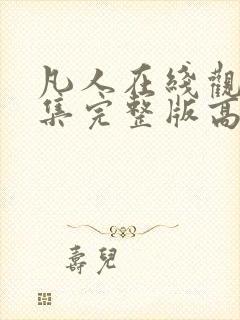 凡人在綫觀
集完整版高
壽兒